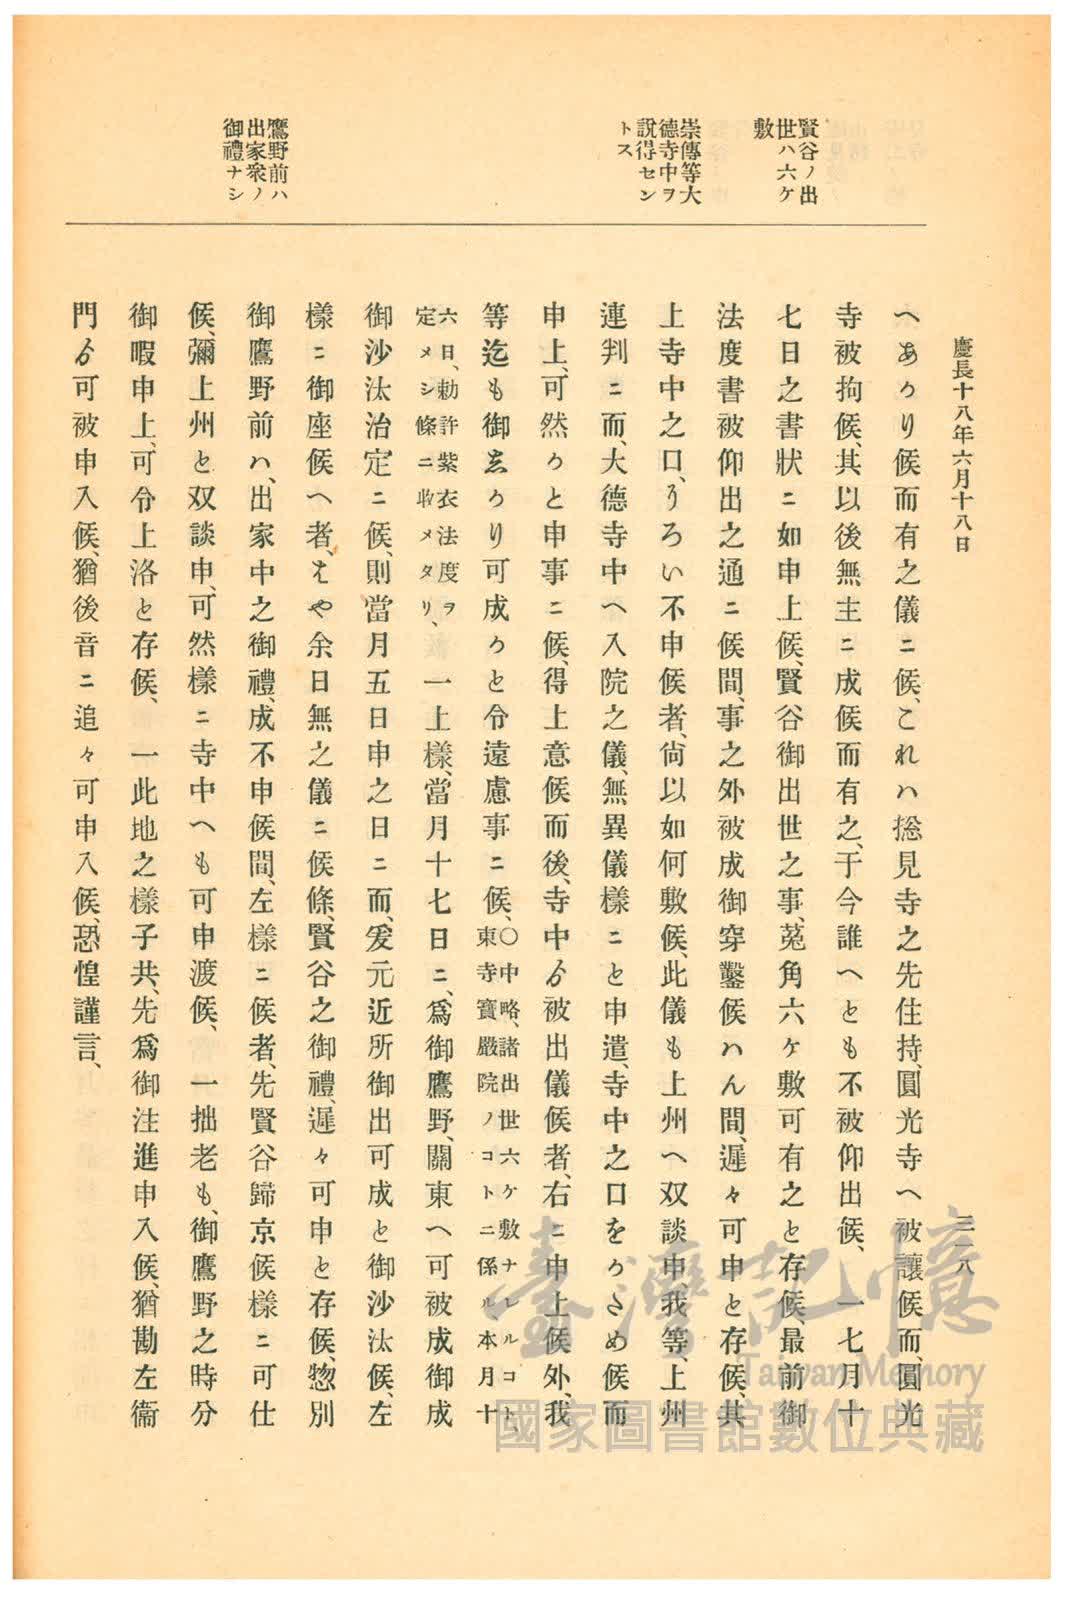 慶長十八年六月十八日
三一八
賢谷ノ出
世ハ六ケ
敷
崇傳等大
德寺中ヲ
說得セン
トス
鷹野前ハ
出家衆ノ
御禮ナシ
へあかり候而有之儀ニ候、これハ摠見寺之先住持、圓光寺へ被讓候而、圓光
寺被拘候、其以後無主ニ成候而有之、于今誰へとも不被仰出候、一七月十
七日之書狀ニ如申上候、賢谷御出世之事、菟角六ヶ敷可有之と存候、最前御
法度書被仰出之通ニ候間、事之外被成御穿鑿候ハん間、遲々可申と存候、其
上寺中之口、うろい不申候者、尙以如何敷候、此儀も上州へ双談申、我等、上州
連判ニ而、大德寺中へ入院之儀、無異儀樣ニと申遣、寺中之口をかため候而
申上、可然かと申事ニ候、得上意候而後、寺中ゟ被出儀候者、右ニ申上候外、我
等迄も御志かり可成かと令遠慮事ニ候、〇中略、諸出世六ケ敷ナレルコト、
東寺寶嚴院ノコトニ係ル本月十
六日、勅許紫衣法度ヲ
定メシ條ニ收メタリ、一上樣、當月十七日ニ、爲御鷹野、關東へ可被成御成
御沙汰治定ニ候、則當月五日申之日ニ而、爰元近所御出可成と御沙汰候、左
樣ニ御座候へ者、はや余日無之儀ニ候條、賢谷之御禮、遲々可申と存候、惣別
御鷹野前ハ、出家中之御禮、成不申候間、左樣ニ候者、先賢谷歸京候樣ニ可仕
候、彌上州と双談申、可然樣ニ寺中へも可申渡候、一拙老も、御鷹野之時分
御暇申上、可令上洛と存候、一此地之樣子共、先爲御注進申入候、猶勘左衞
門ゟ可被申入候、猶後音ニ追々可申入候、恐惶謹言、
臺灣記憶
Taiwan Memory
國家圖書館數位典藏